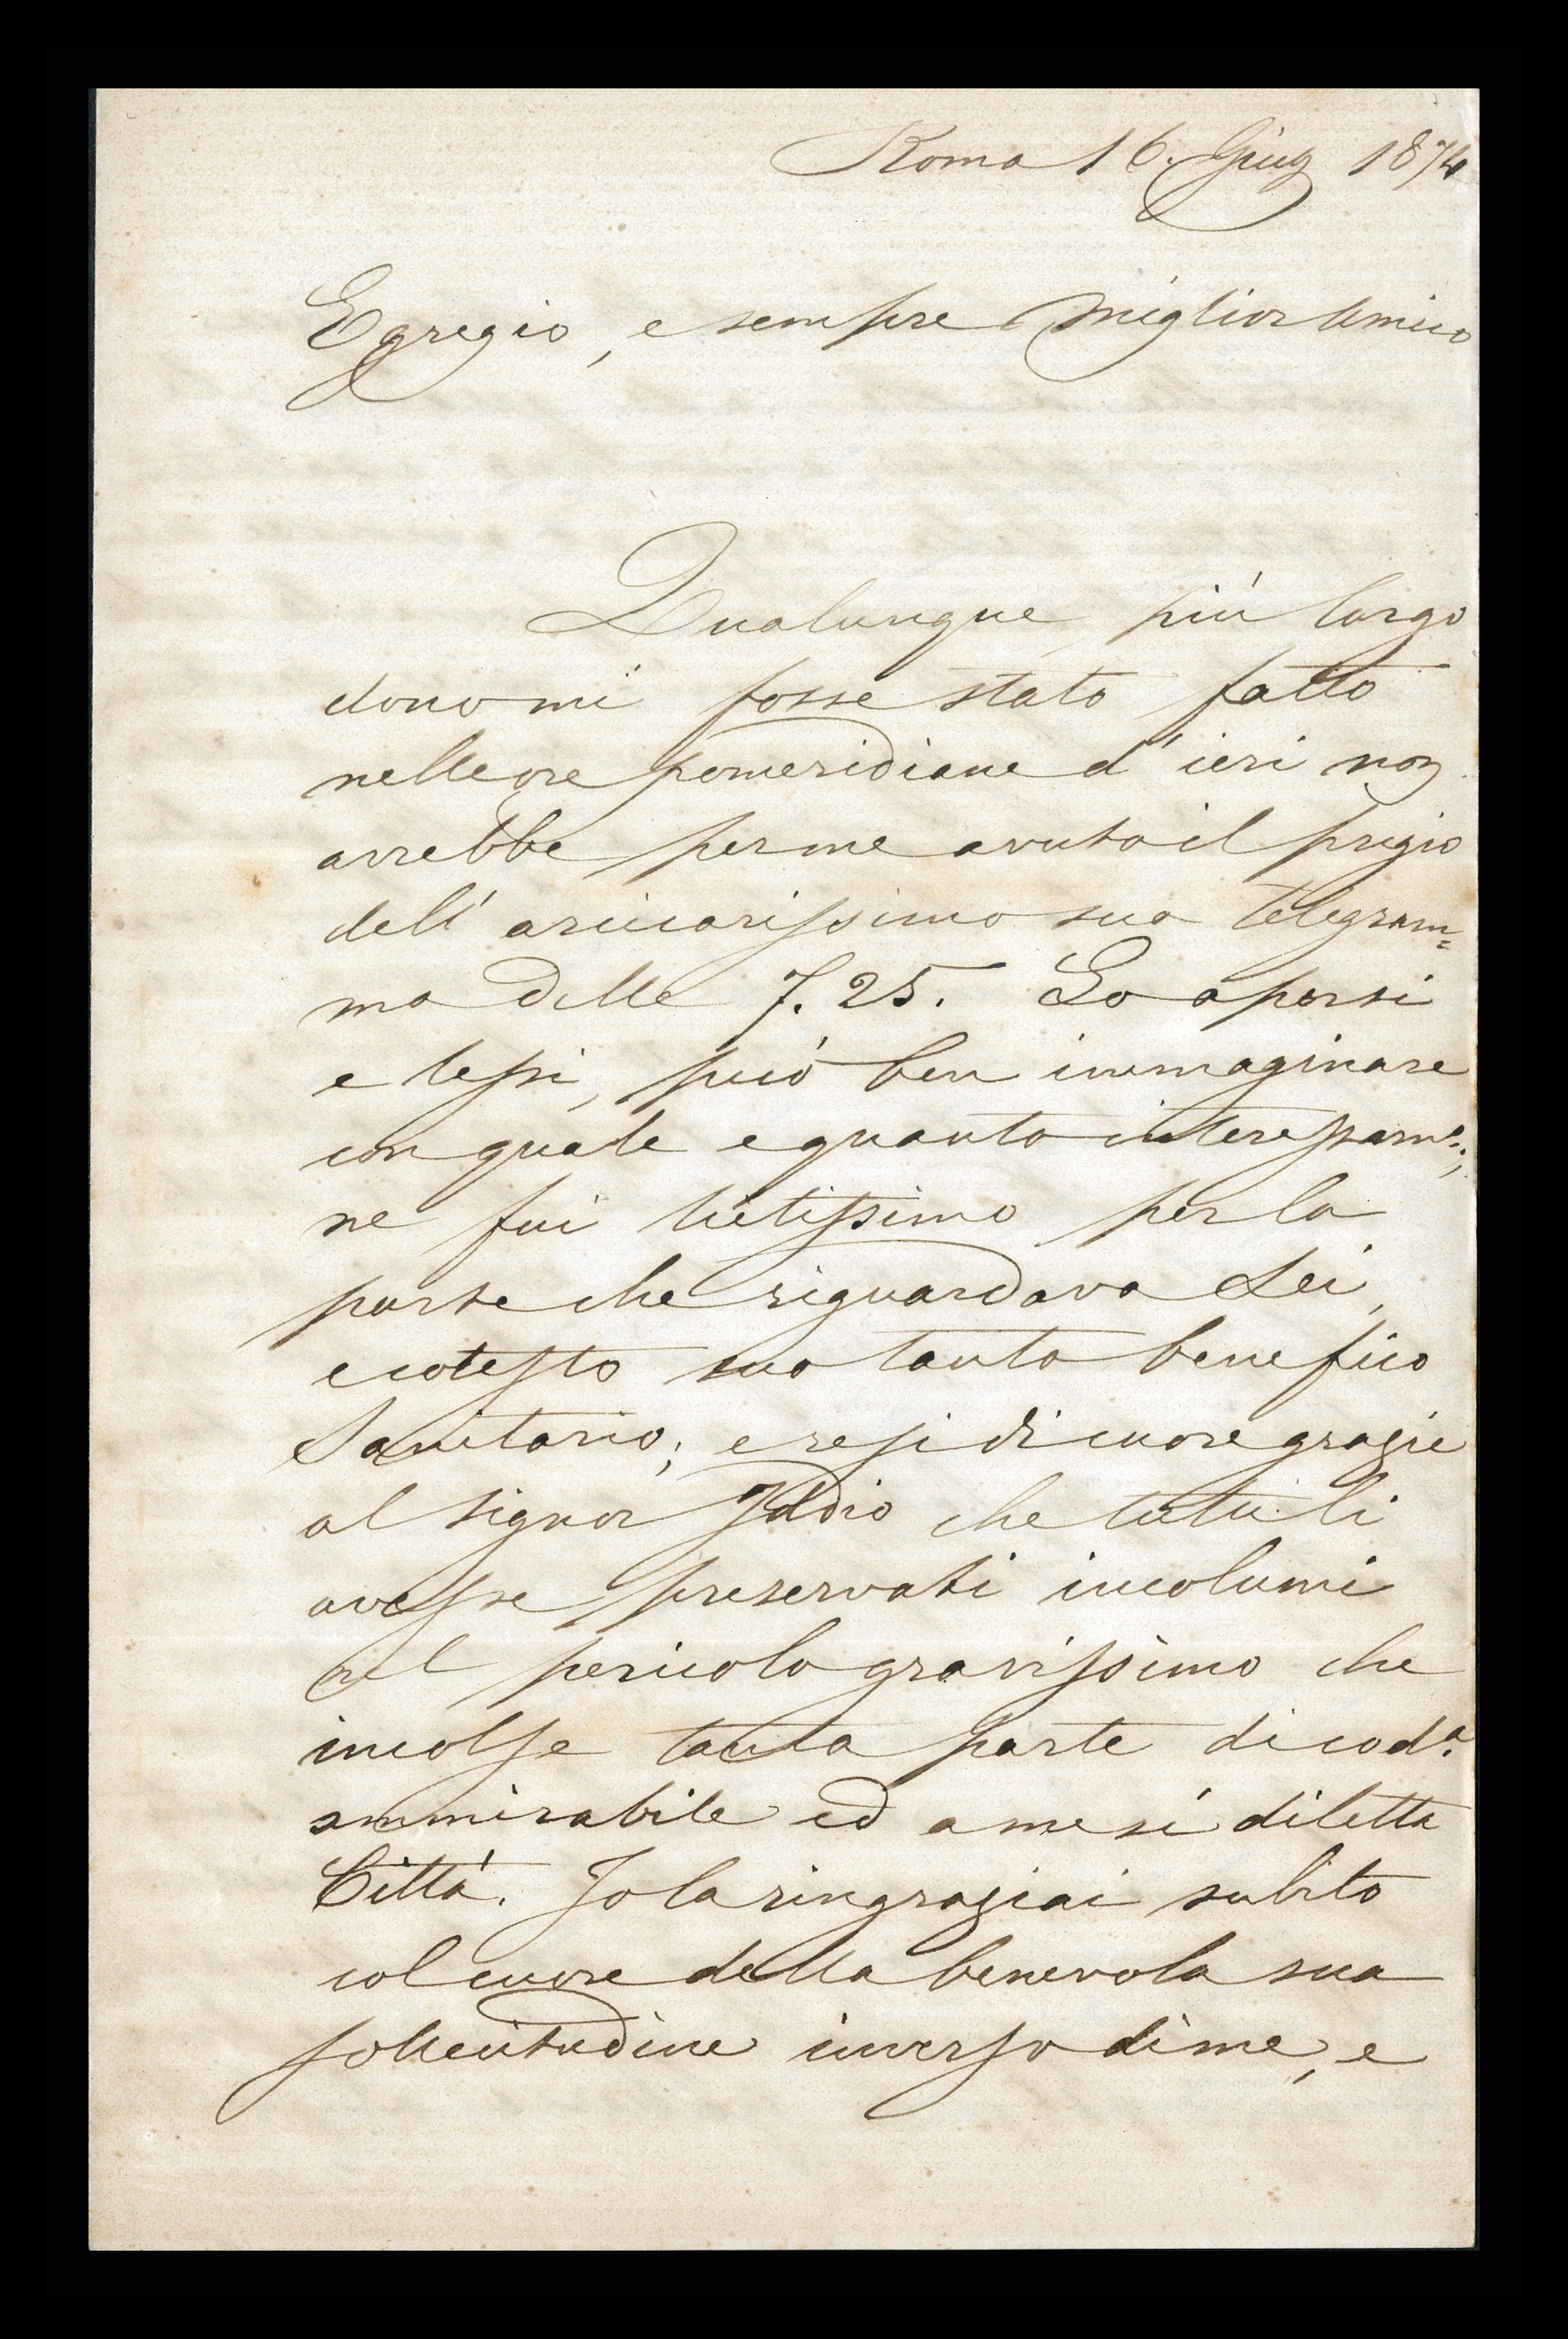 Roma 16. Giug 1874
Egregio, e sempre Miglior Amico
Qualunque più largo
dono mi fosse stato fatto
nelle ore pomeridiane d'ieri non
avrebbe per me avuto il pregio
dell' arcicarissimo suo telegram=
ma delle 7.25. Lo apersi
e lessi, può ben immaginare
con quale e quanto interessam.º;
ne fui lietissimo per la
parte che riguardava Lei,
e cotesto suo tanto benefico
Sanitario; e resi di cuore grazie
al Signor Iddio che tutti li
avesse preservati incolumi
nel pericolo gravissimo che
incolse tanta parte di cod.ª
ammirabile ed a me sì diletta
Città. Io la ringraziai subito
col cuore della benevola sua
sollecitudine inverso di me, e